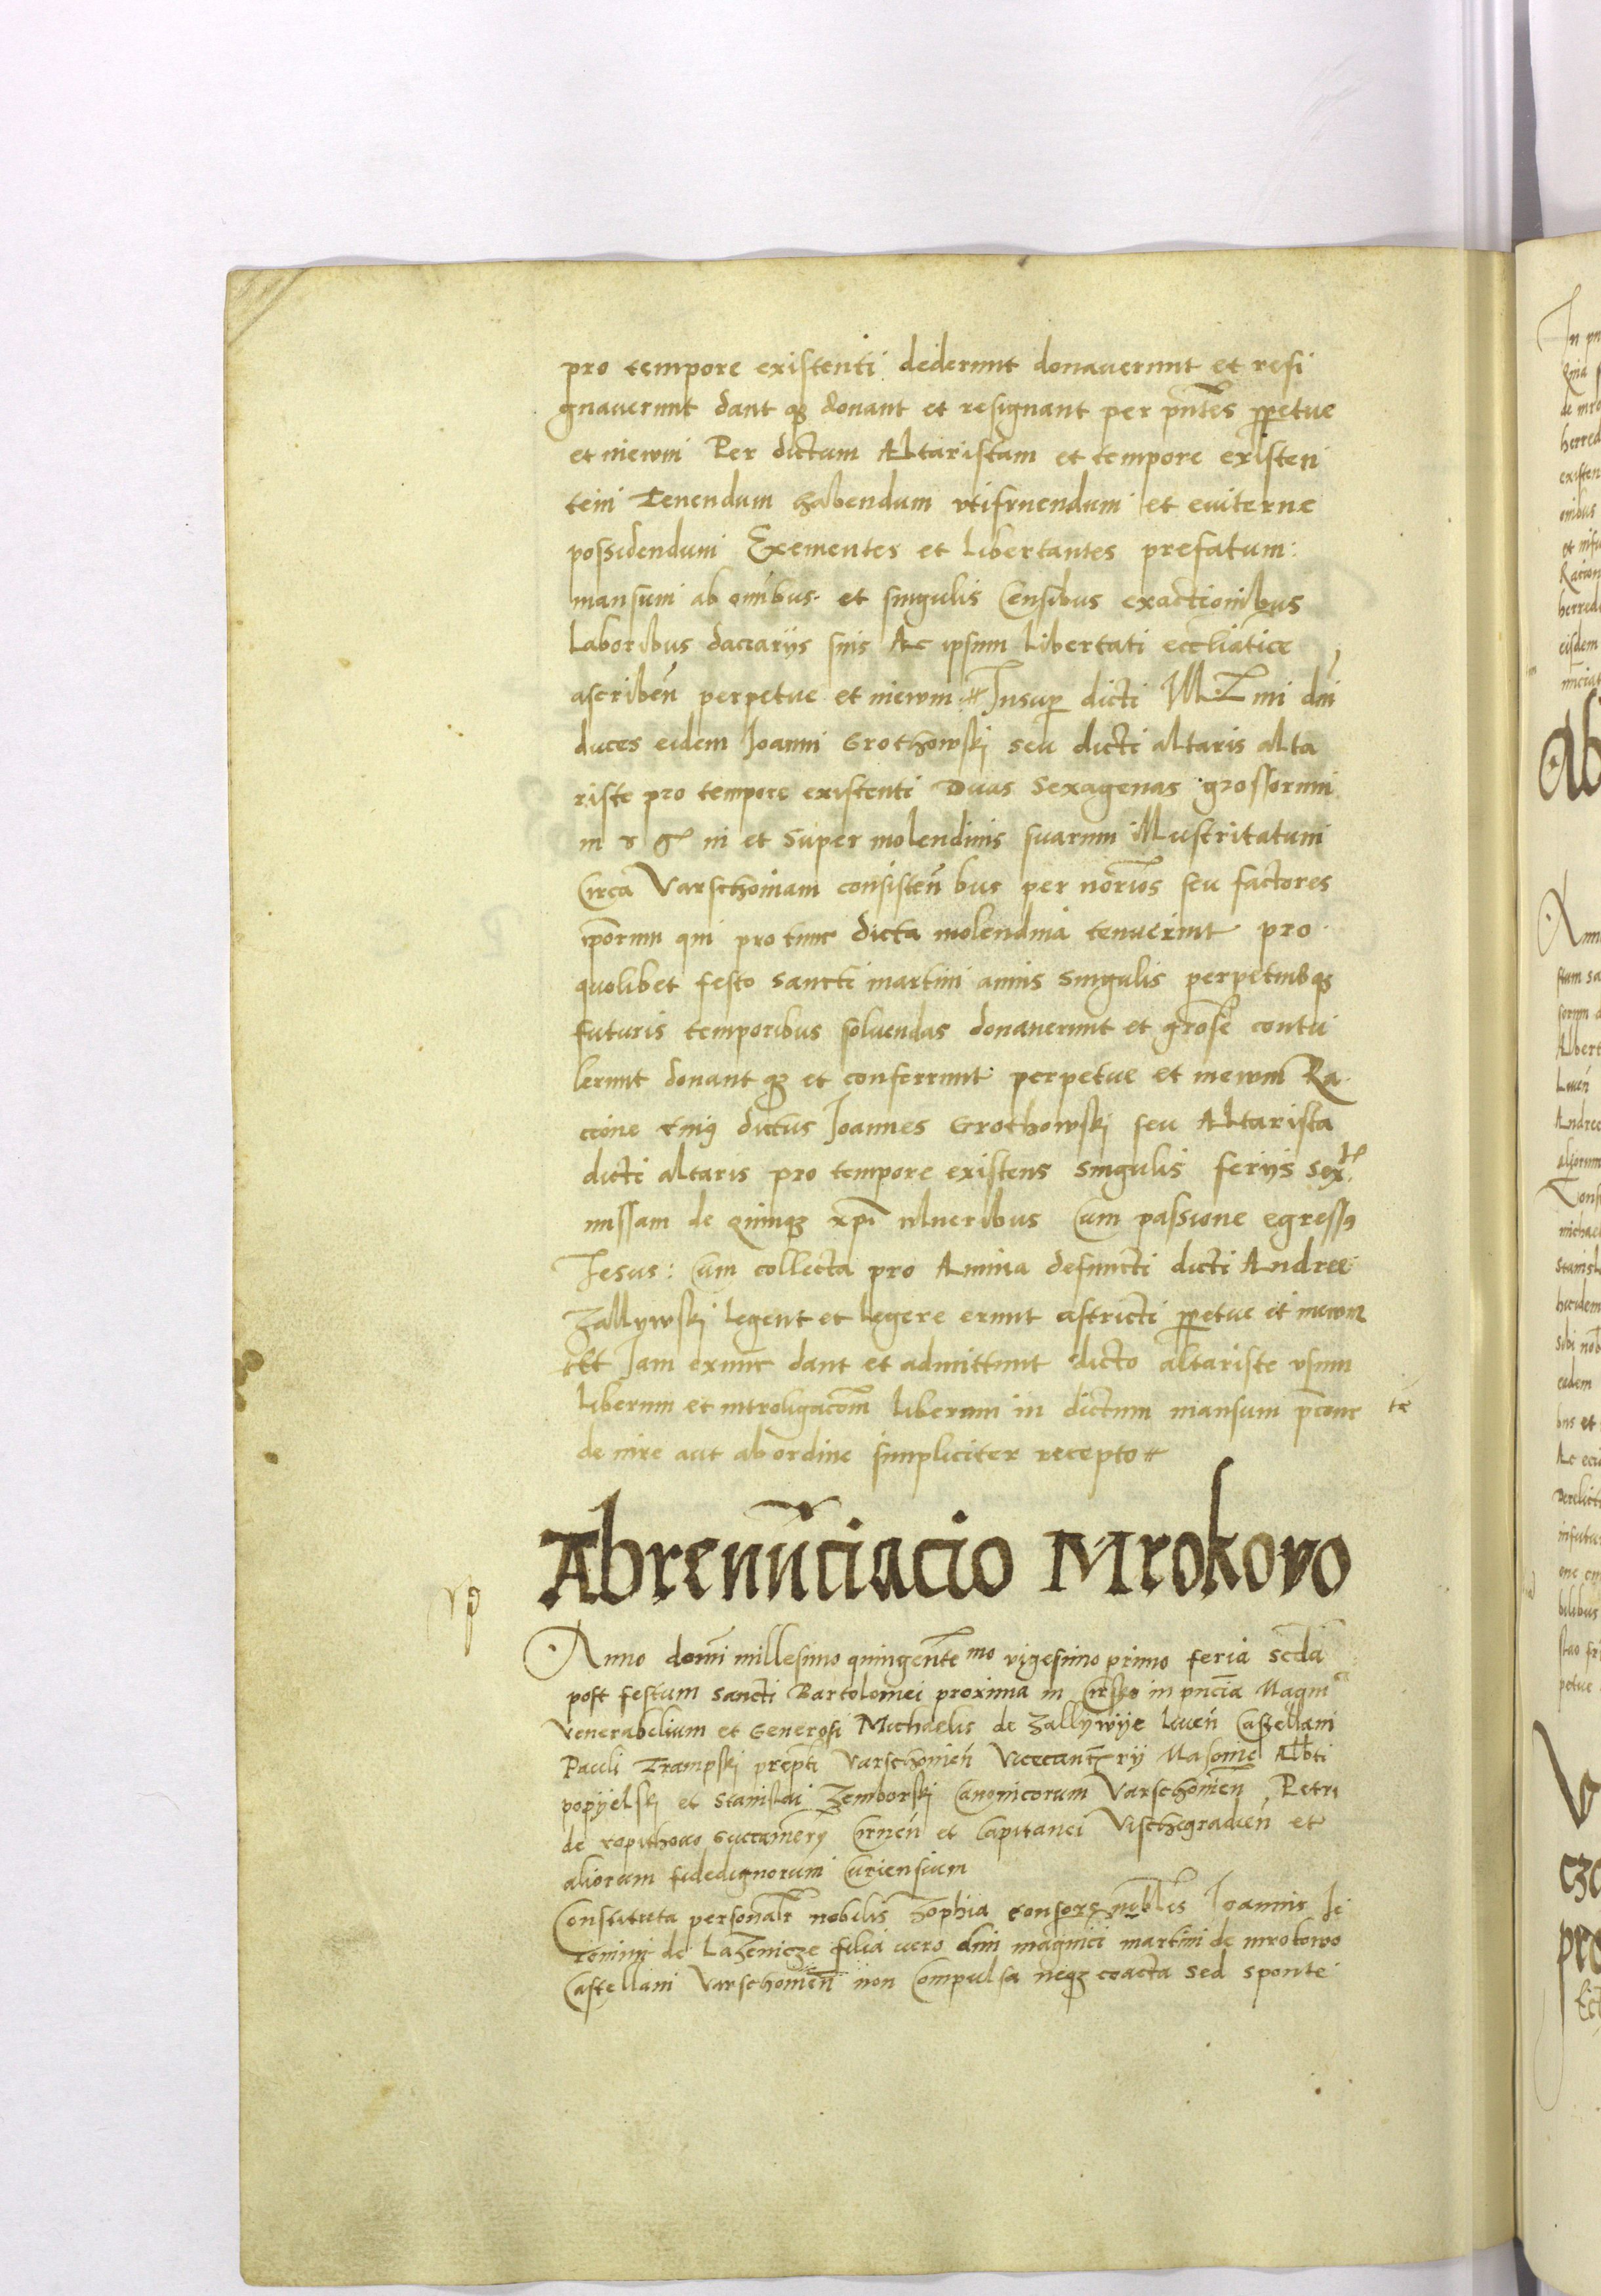 pro tempore existenti dederunt donauerunt et resi
gnauerunt dant qꝫ donant et resignant per pn̄tes ꝑpetue
et inewm Per dictum Altaristam et tempore existen
tem Tenendum habendum vtifruendum et euiterne
possidendum Exementes et Libertantes prefatum:
mansum ab om̄ibus et singulis Censibus exactionibus
Laboribus daciarijs suis Ac ipsum Libertati eccl̄iatice
ascriben̄ perpetue et inewm Insuꝑ dicti Ill mi dn̄i
duces eidem Joanni Grothowskj seu dicti altaris alta
riste pro tempore existenti Duas Sexagenas grossorum
in et super molendinis suarum illustritatum
Circa Varschouiam consisten̄ bus per seu factores
ip̄orum qui pro tunc dicta molendina tenuerint pro
quolibet festo sancti martini annis singulis perpetuisqꝫ
futuris temporibus soluendas donauerunt et grose contu
lerunt donant qꝫ et conferrunt perpetue et inewm Ra
cione cuiꝯ dictus Joannes Grothowskj seu Altarista
dicti altaris pro tempore existens singulis ferijs sex
missam de quinqꝫ xp̄i vlneribus Cum passione egressꝯ
Jesus: Cum collecta pro Anima defuncti dicti Andree
Zallywskj legent et legere erunt astricti ꝑpetue et inewm
Et Jam exnunc dant et admittunt dicto altariste vsum
liberum et introligacōm liberum in dictum mansum
de iure aut ab ordine simpliciter recepto
Abrenūnciacio Mrokovo
Anno domi millesimo quingente mo vigesimo primo feria scd̄a
post festum sancti Bartolomei proxima in Cirsko in pn̄cia Magni
venerabilium et Generosi Michaelis de Zallywÿe liuen̄ Castellani
Pauli Trampskj prepti Varschouien̄ Vicecancrij Masouie Alb̄ti
popÿelskj et Stanislai Zemborskj Canonicorum Varschouien̄ Petri
de succamerij Cirnen̄ et Capitanei Vischegradien̄ et
aliorum fidedignorum Curiensium
Constituta personalr nobilis Zophia consors nobl̄is Joannis
de Lazenicze filia uero dn̄i magnici martini de mrokowo
Castellani Varschouien̄ non Compulsa neqꝫ coacta sed sponte